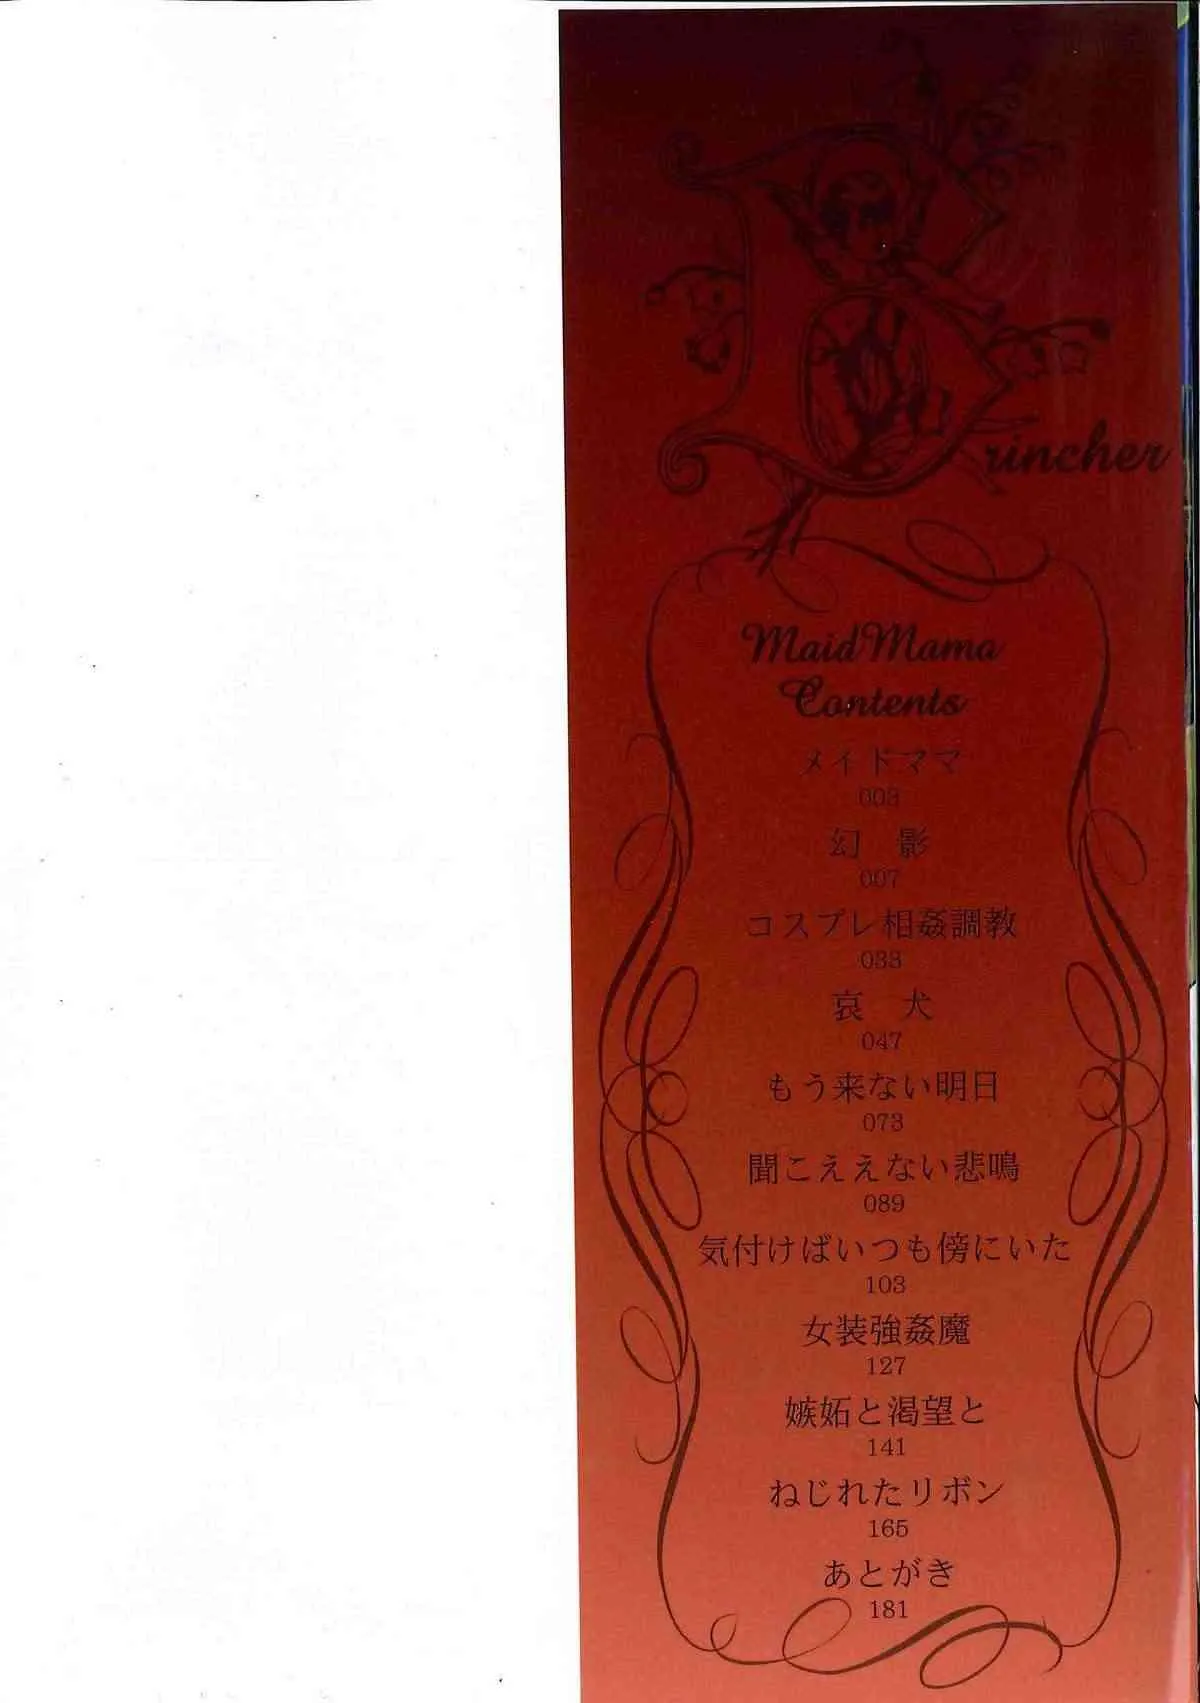 Drincher
Maid Mama
Contents
メイドママ
003
幻　影
007
コスプレ相姦調教
033
哀　犬
047
もう来ない明日
073
聞こええない悲鳴
089
気付けばいつも傍にいた
103
女装強姦魔
127
嫉妬と渇望と
141
ねじれたリボン
165
あとがき
181